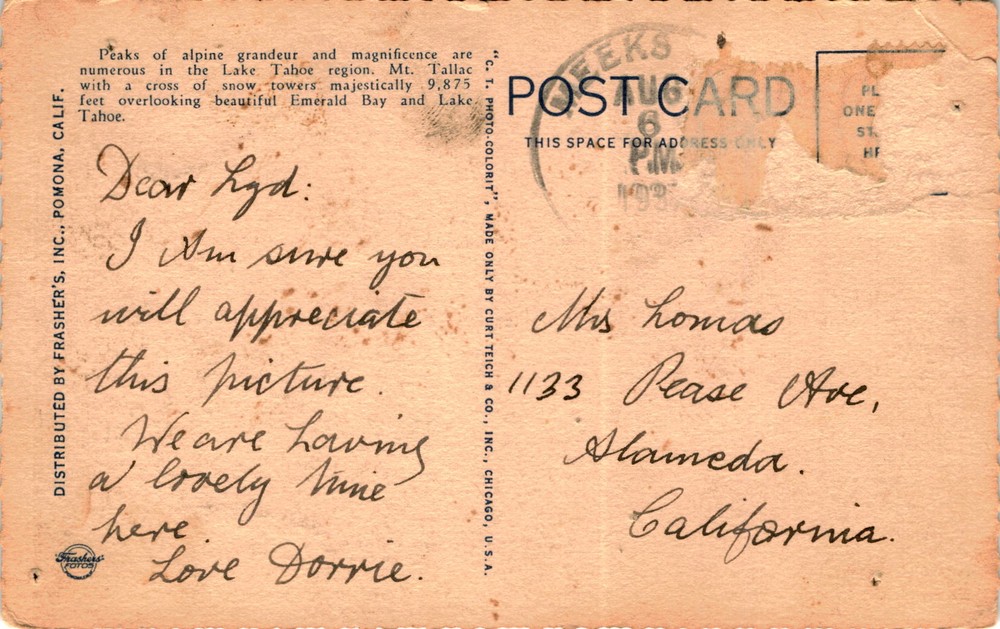 Peaks of alpine grandeur and magnificence are
numerous in the Lake Tahoe region. Mt. Tallac
with a cross of snow towers majestically 9,875
feet overlooking beautiful Emerald Bay and Lake
Tahoe.
DISTRIBUTED BY FRASHER'S, INC., POMONA, CALIF.
Dear Lyd:
I Am sure you
will appreciate
this picture.
We are having
a lovely time
here.
Love Dorrie.
Frashers
FOTOS
"C. T. PHOTO-COLORIT", MADE ONLY BY CURT TEICH & CO., INC., CHICAGO, U.S.A.
POST CARD
THIS SPACE FOR ADDRESS ONLY
MEEKS
AUG
6
PM
193
PL
ONE
ST
HE
Mrs Lomas
1133 Pease Ave,
Alameda.
California.